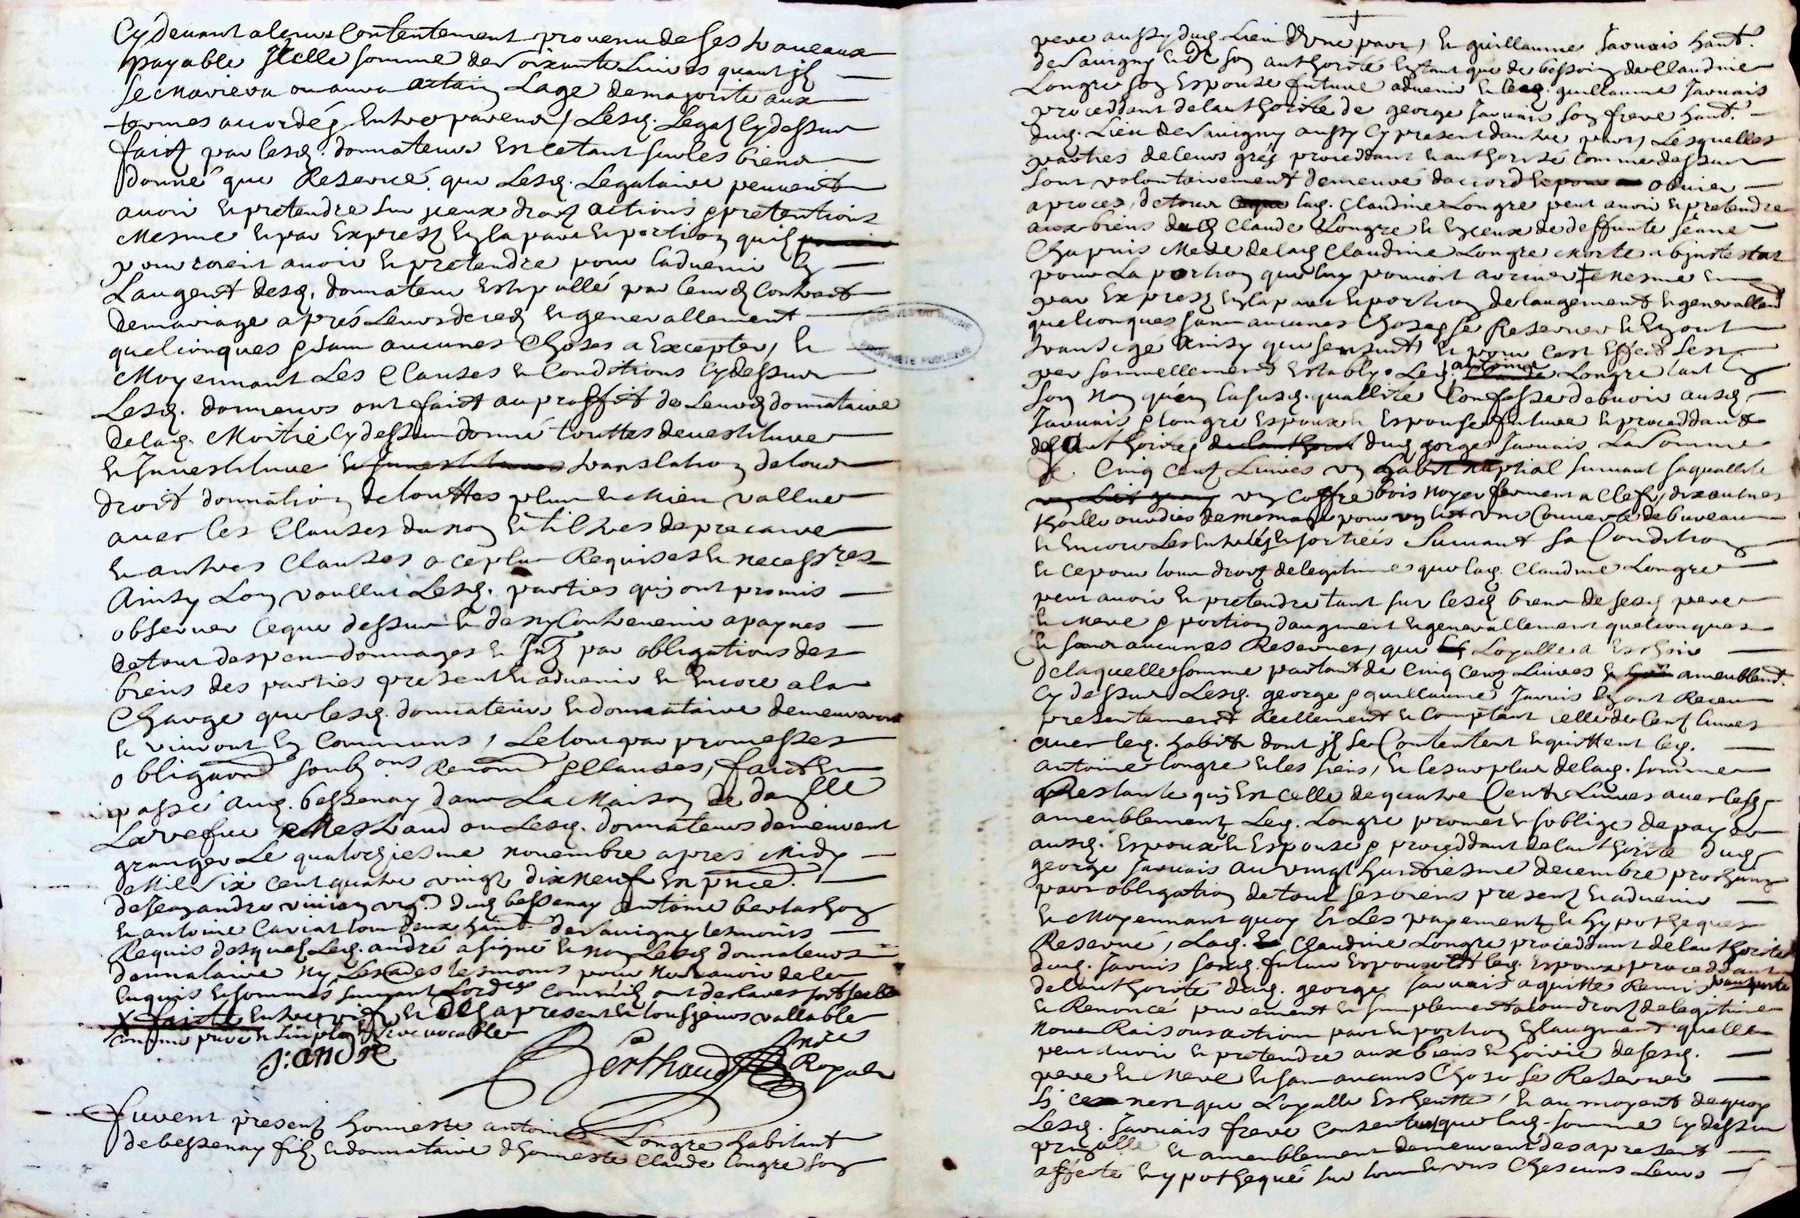 Cy devant a leurs Contentement provenu de ses traveaux
payable Jcelle somme de soixante Livres quant jl
se Mariera ou aura attain Lage de majorité aux
termes accordés Entre parens, Lesd. Legatz Cydessus
faitz par lesd. donnateurs Et ce tant sur les biens
donné que Reservé. que Lesd. Legataire peuvent
avoir et pretendre sur jceux droitz actions et pretentions
Mesme et par Exprez En la part et portion quil
pourroient avoir et pretendre pour ladvenir En
Laugent desd. donnateur Estipullé par leurd Contract
de mariage aprés Leurs decedz et generallement
quelconques et sans aucunes Choses a Excepter, Et
Moyennant Les Clauses et Conditions Cy dessus
Lesd. donneurs ont fait au proffit de Leurd donnataire
de lad. Moitié Cy dessus donné touttes devestiture
et Jnvestiture et translation de tous
droit donnation de touttes plus et Mieu vallue
avec les Clauses du non et tiltres de precaire
et autres Clauses a ce plus Requises et necessres
Ainsy Lon voullut Lesd. parties qui ont promis
observer ce que dessus et de ny Contrevenir a paynes
de tous despens dommages et Jntz par obligations des
biens des parties present et advenir et Encore a la
Charge que lesd. donnateurs et donnataire demeureront
et vivront En Communs, Le tout par promesses
obligaons soubzons Renonons et Clauses, fait et
passé aud. bessenay dans La Maison de dalle
La vefue Mestraud ou Lesd. donnateurs demeurent
granger Le quatorziesme novembre apres Midy
de Mil six cent quatre vingt dix neuf En pnce.
de Jean andre vivian vign. dud bessenay antoine berthon
et antoine Caviat tous deux habit de savigny tesmoins
Requis desquels Led. andré a signé et non Lesd donnateurs
donnataire ny Les autres tesmoins pour ne scavoir de ce
Enquis et sommés suivant Lordce Comme ilz ont declaré
X faite Entre vifz et des a present et tousjours vallable
comme pure et simple et jrrevocable
J: andré
Berthaud
Nore Royal
furent presentz honneste antoine Longre habitant
de bessenay filz et donnataire dhonneste Claude Longre son
pere aussy dud Lieu dune part, et guillaume Jarnais habt.
de savigny et de son authorité En tant que de besoing de Claudine
Longre son Espouse future advenir et led. guillaume Jarnais
proceddant de lauthorité de george Jarnais son frere habt.
dud. Lieu de savigny aussy Cy present dautre part, Lesquelles
parties de leurs gréz proceddant et authorisé Comme dessus
sont volontairement demeuré daccord et pour obvier
a proces, de tous lad. Claudine Longre peut avoir et pretendre
aux biens dud Claude Longre et Ez ceux de deffunte Jeane
Chapuis Mere de lad Claudine Longre Morte abjntestat
pour La portion que luy pouvoit arriver Mesme et
par Exprez En la part et portion de laugement et generallemt
quelconques sans aucunes Choses se Reserver et En ont
transige Ainsy que sensuit, Et pour Cest Effect sest
personnellement Estably Led. antoine Longre tant En
son non quen la susd. quallité Confesse debvoir ausd.
Jarnais et Longre Espoux et Espouse future et proceddant
de lauthorité dud george Jarnais La somme
de Cinq Cent Livres un habit nuptial suivant sa quallité
un Coffre bois noyer fermant a Clef, dix aulnes
thoille ourdies de mesnage pour un lict une Couverte de bureau
et Encore Les Entrées et sorties suivant sa Condition
et ce pour tous droitz de legitime que lad. Claudine Longre
peut avoir et pretendre tant sur lesd biens de sesd pere
et Mere et portion daugment et generallement quelconques
et sans aucunes Reserves, que Loyalle Escheoir
de laquelle somme partant de Cinq Cens Livres et ameublemt.
Cy dessus Lesd. george et guillaume Jarnais En ont Receu
presentement Reellement et Comptant celle de Cent Livres
avec led. habit dont jlz se Contentent et quittent led.
antoine Longre et les siens, et le surplus de lad. somme
Restante qui Est celle de quatre Cent Livres avec lesd
ameublement Led. Longre promet et soblige de payer
ausd. Espoux et Espouse et proceddant de lauthorité dud
george Jarnais au vingt huictiesme decembre prochain
par obligation de tous ses biens present et advenir
et Moyennant quoy Et Les payement et hypotheques
Reservé, Lad. Claudine Longre proceddant de lauthorité
dud. Jarnais sond. futur Espoux et led. Espoux proceddant
de lauthorité dud. george Jarnais a quitté Remis transporté
et Renoncé purement et simplement a tous droitz de legitime
nom Raisons action part et portion En laugment quelle
peut avoir et pretendre aux biens et hoirie de sesd.
pere et Mere Et sans aucuns Chose se Reserver
si ce nest que Loyalle Escheutte, Et au moyent de quoy
Lesd. Jarnais frere Consentent que lad. somme Cy dessus
principalle et ameublement demeurent des a present
affecté et ypothequé sur tous et uns Chescuns Leurs